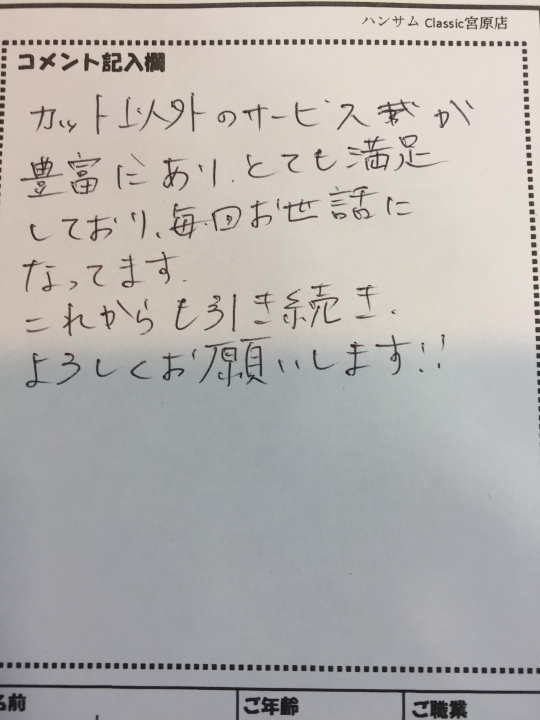 ハンサム Classic宮原店
コメント記入欄
カット以外のサービスが
豊富にあり、とても満足
しており、毎回お世話に
なってます.
これからも引き続き、
よろしくお願いします!!
名前
ご年齢
ご職業